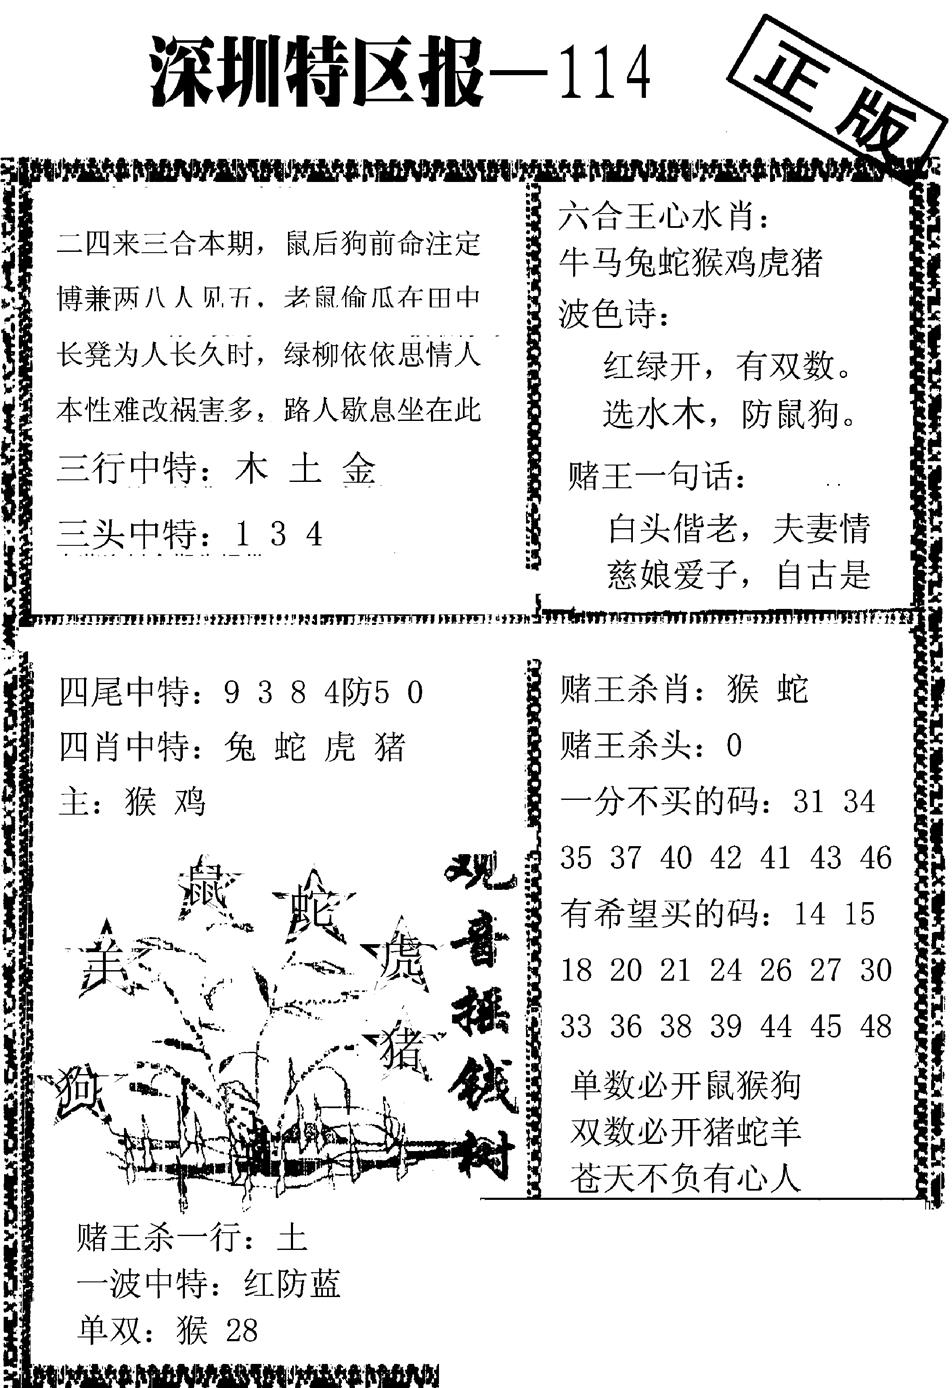 深圳特区报—114
正版
二四来三合本期，鼠后狗前命注定
博兼两八人见五，老鼠偷瓜在田中
长凳为人长久时，绿柳依依思情人
本性难改祸害多，路人歇息坐在此
三行中特：木 土 金
三头中特：1 3 4
六合王心水肖：
牛马兔蛇猴鸡虎猪
波色诗：
红绿开，有双数。
选水木，防鼠狗。
赌王一句话：
白头偕老，夫妻情
慈娘爱子，自古是
四尾中特：9 3 8 4防5 0
四肖中特：兔 蛇 虎 猪
主：猴 鸡
鼠
蛇
羊
虎
猪
狗
观音摇钱树
赌王杀一行：土
一波中特：红防蓝
单双：猴 28
赌王杀肖：猴 蛇
赌王杀头：0
一分不买的码：31 34
35 37 40 42 41 43 46
有希望买的码：14 15
18 20 21 24 26 27 30
33 36 38 39 44 45 48
单数必开鼠猴狗
双数必开猪蛇羊
苍天不负有心人